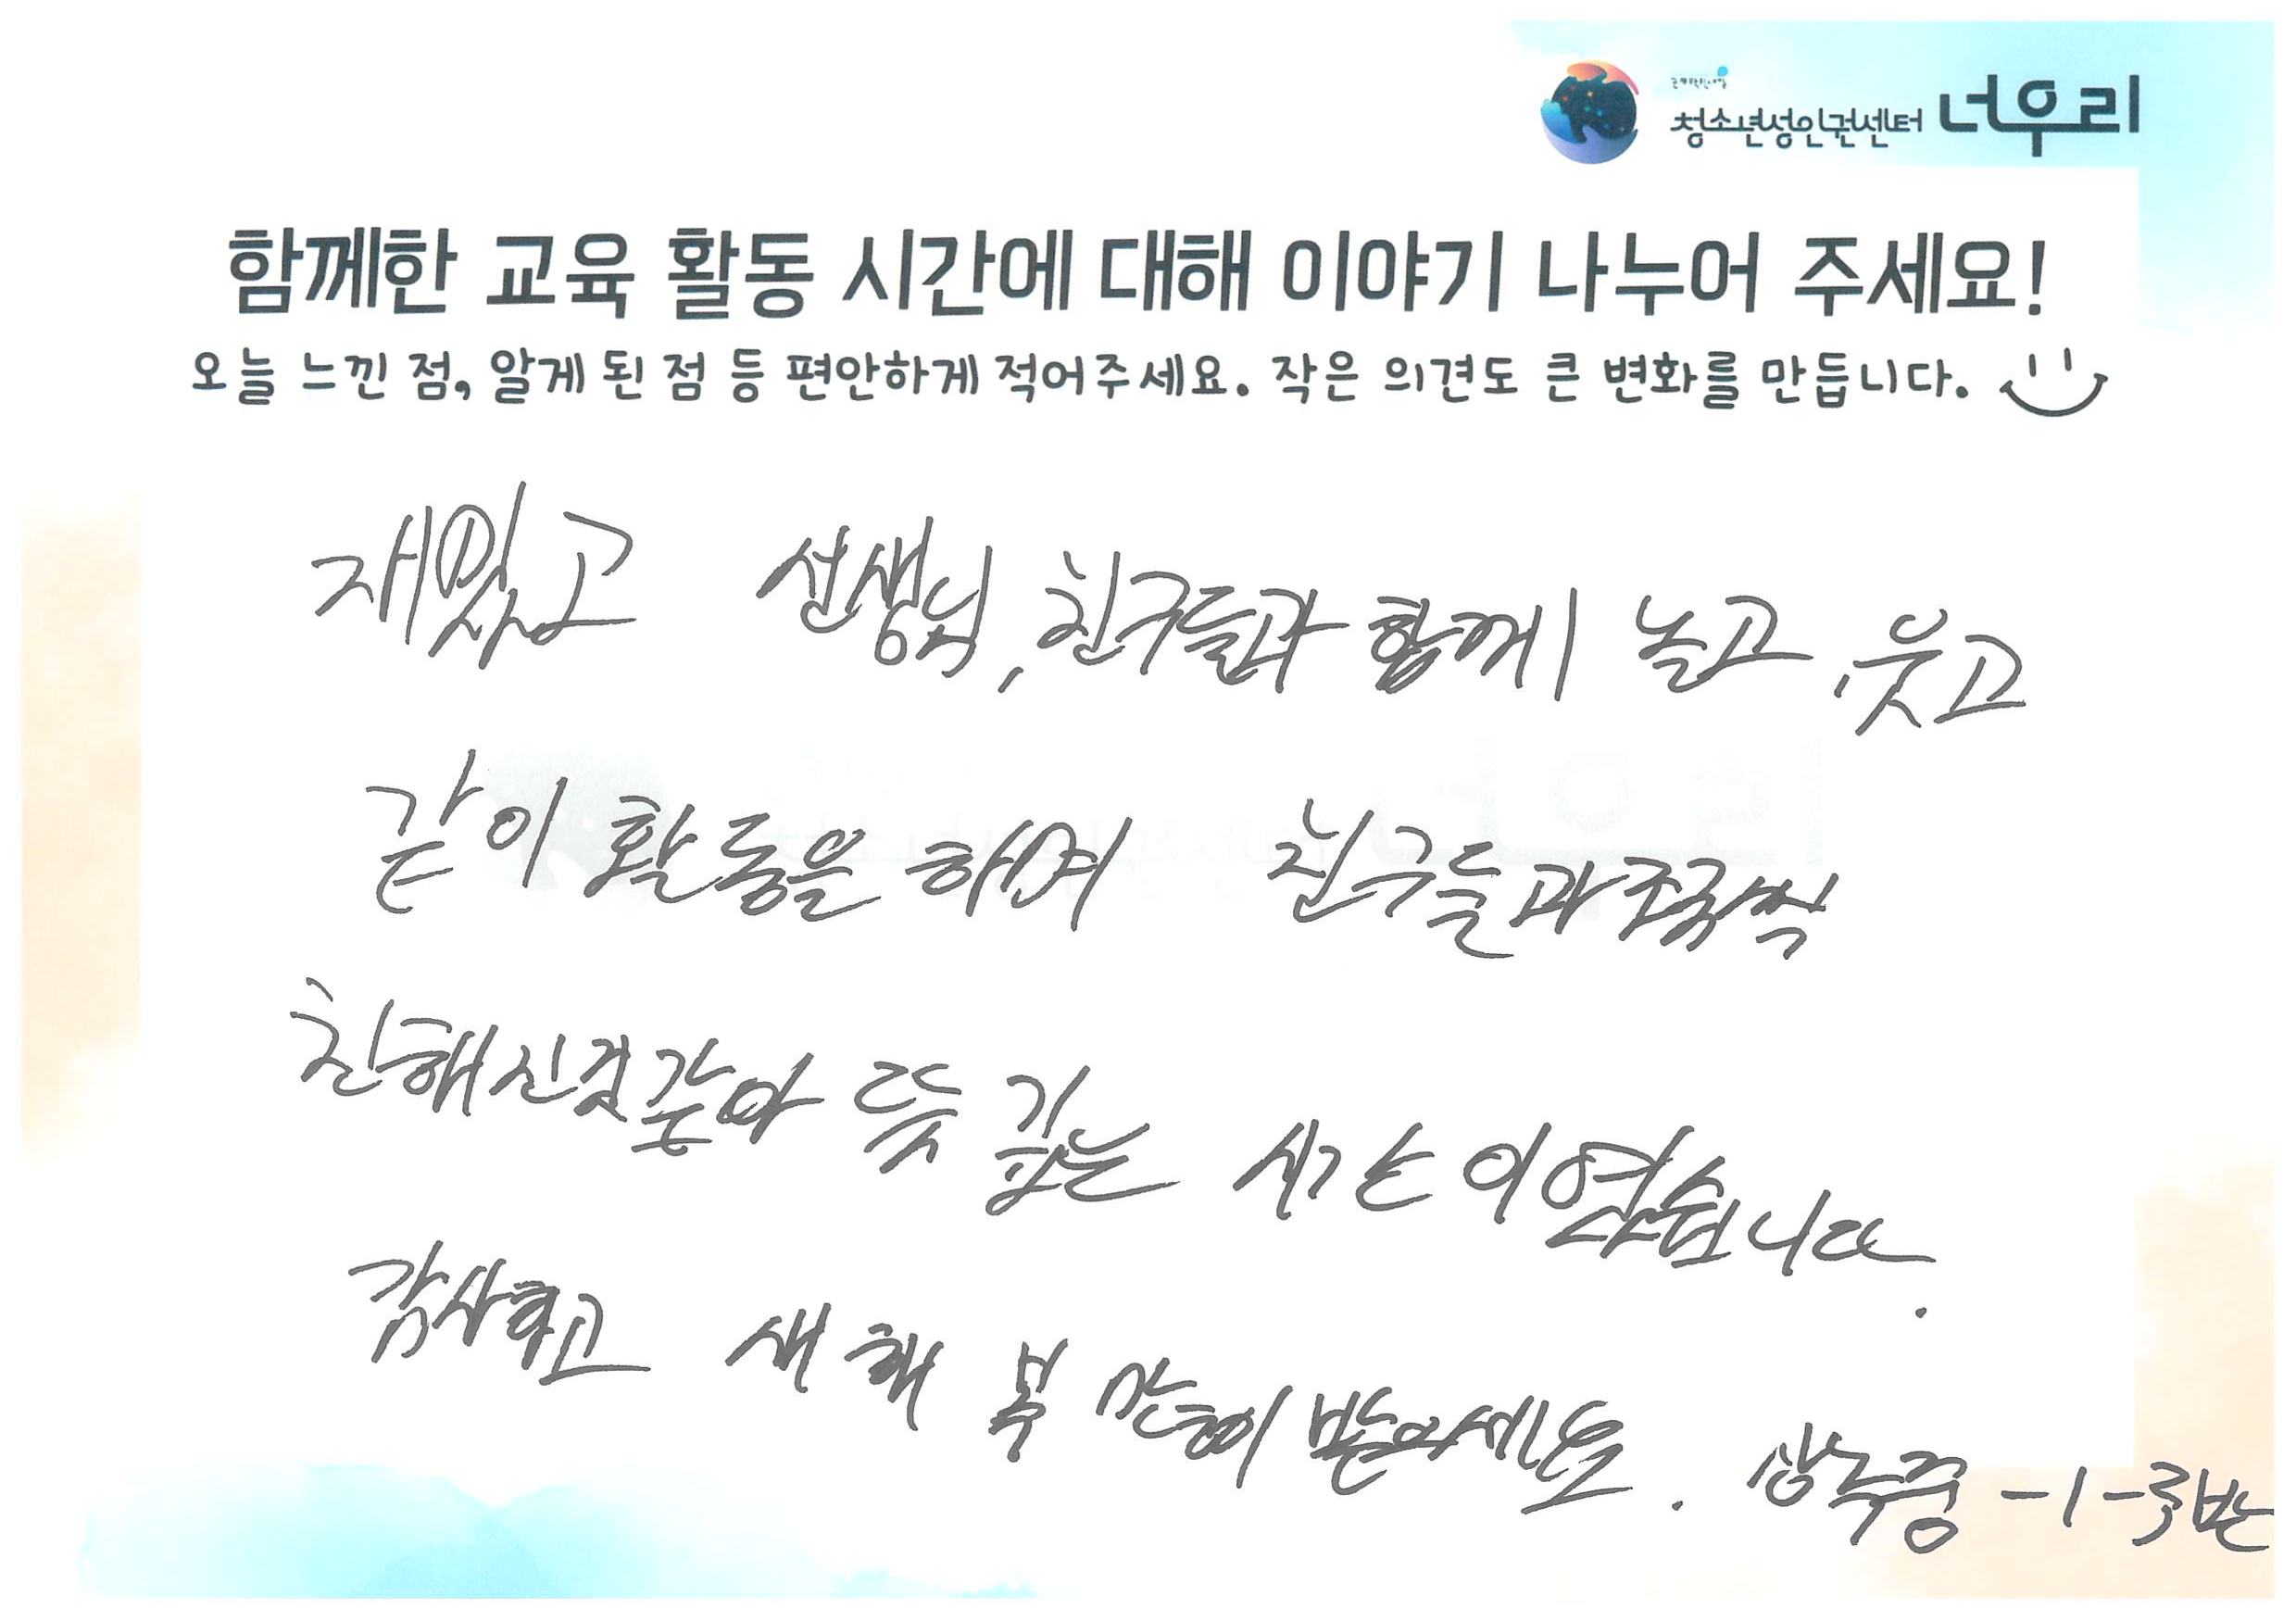 청소년성인권센터 너우리
함께한 교육 활동 시간에 대해 이야기 나누어 주세요!
오늘 느낀 점, 알게 된 점 등 편안하게 적어주세요. 작은 의견도 큰 변화를 만듭니다.
재밌고 선생님, 친구들과 함께 놀고 웃고
같이 활동을 하며 친구들과 조금씩
친해진것같아 뜻 깊은 시간이였습니다.
감사하고 새해 복 많이 받으세요. 상록중 -1-3반